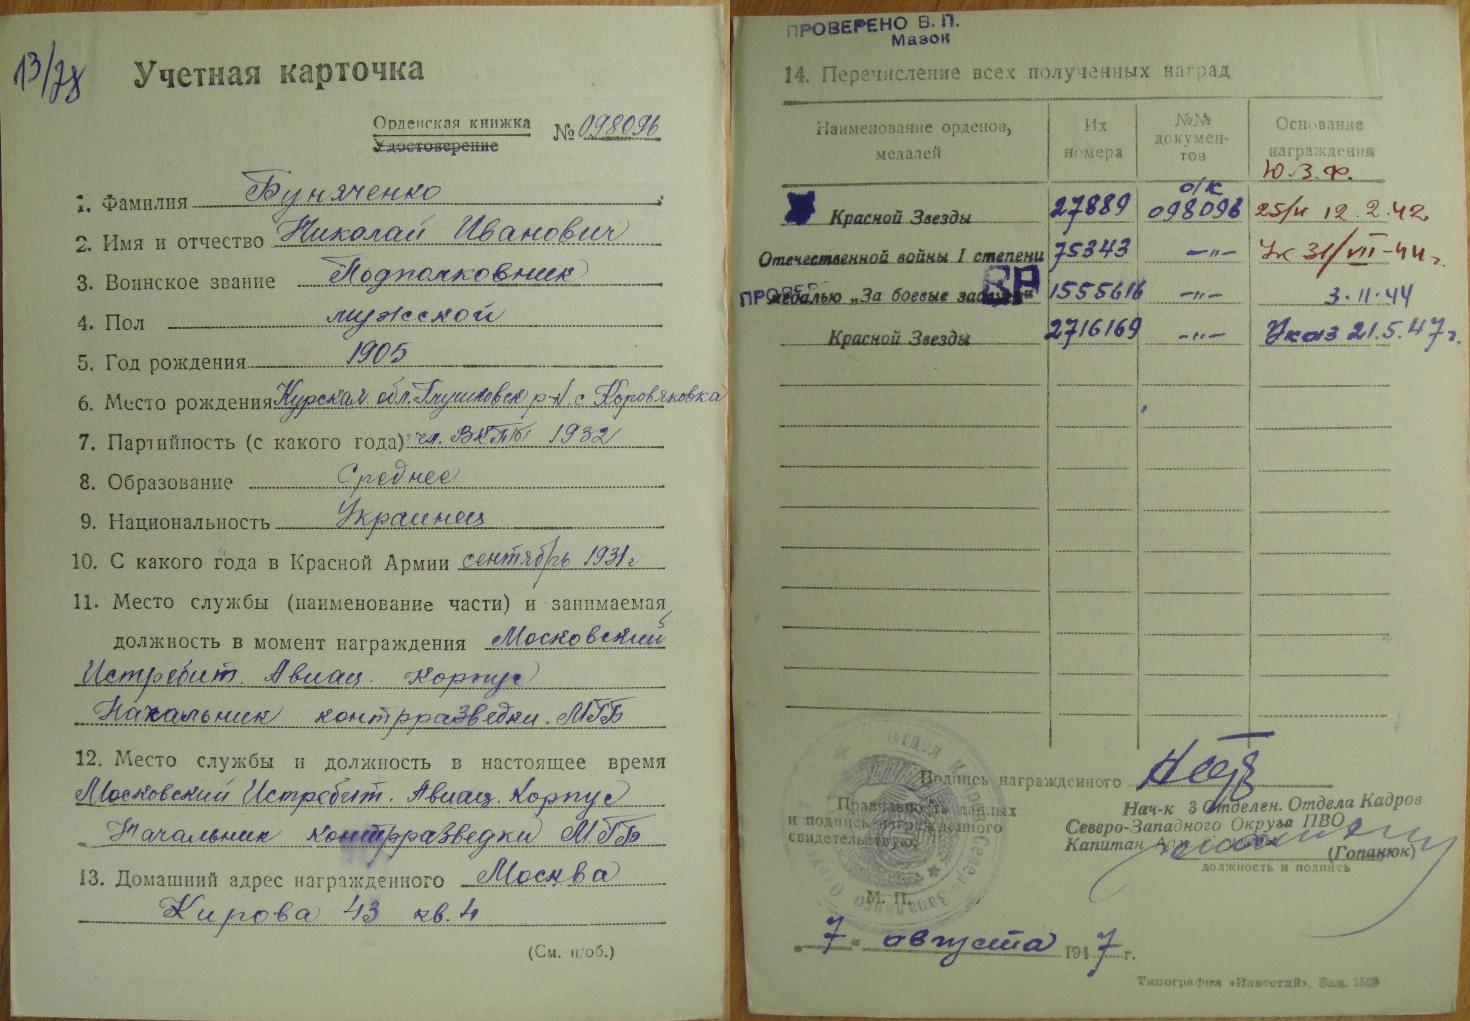 13/78
Учетная карточка
Орденская книжка
Удостоверение
№ 098096
1. Фамилия Буняченко
2. Имя и отчество Николай Иванович
3. Воинское звание Подполковник
4. Пол мужской
5. Год рождения 1905
6. Место рождения Курская обл. Глушковск р-н. с Коровяковка
7. Партийность (с какого года) чл. ВКПб 1932
8. Образование Среднее
9. Национальность Украинец
10. С какого года в Красной Армии сентябрь 1931г
11. Место службы (наименование части) и занимаемая
должность в момент награждения Московский
Истребит. Авиац. Корпус
Начальник контрразведки. МГБ
12. Место службы и должность в настоящее время
Московский Истребит. Авиац. Корпус
Начальник контрразведки МГБ
13. Домашний адрес награжденного Москва
Кирова 43 кв. 4
(См. н/об.)
ПРОВЕРЕНО В. П.
Мазок
14. Перечисление всех полученных наград
Наименование орденов, медалей
Их номера
№№ документов
Основание награждения
Ю.З.Ф.
Красной Звезды 27889 о/к 098096 25/н 12.2.42
Отечественной войны I степени 75343 —"— Ук 31/VII-44г.
ПРОВЕР
ВР
медалью „За боевые заслуги“ 1555616 —"— 3.11.44
Красной Звезды 2716169 —"— Указ 21.5.47г.
Подпись награжденного
Правильность данных
и подпись награжденного
свидетельствую:
Нач-к 3 Отделен. Отдела Кадров
Северо-Западного Округа ПВО
Капитан
(Гопанюк)
должность и подпись
М. П.
„7“ августа 1947 г.
Типография «Известий». Зак.